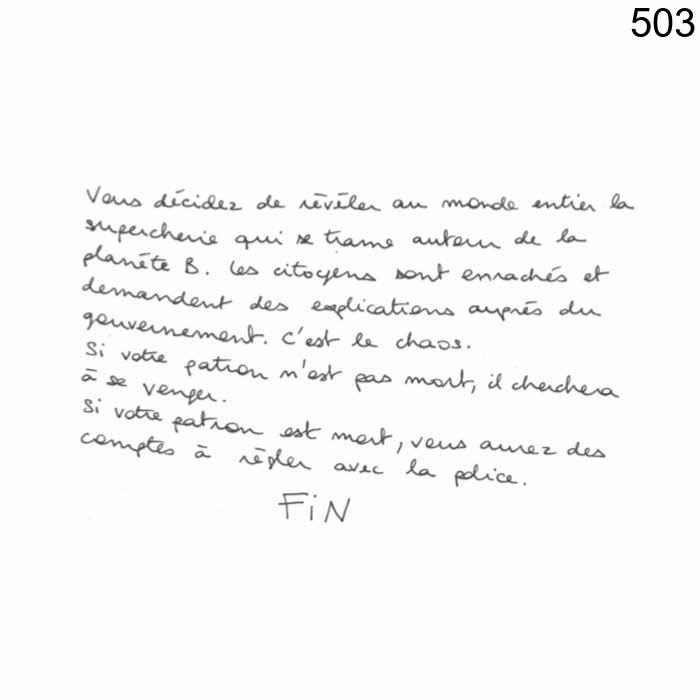 503
Vous décidez de révéler au monde entier la
supercherie qui se trame autour de la
planète B. Les citoyens sont enrachés et
demandent des explications auprès du
gouvernement. C'est le chaos.
Si votre patron n'est pas mort, il cherchera
à se venger.
Si votre patron est mort, vous aurez des
comptes à régler avec la police.
FiN